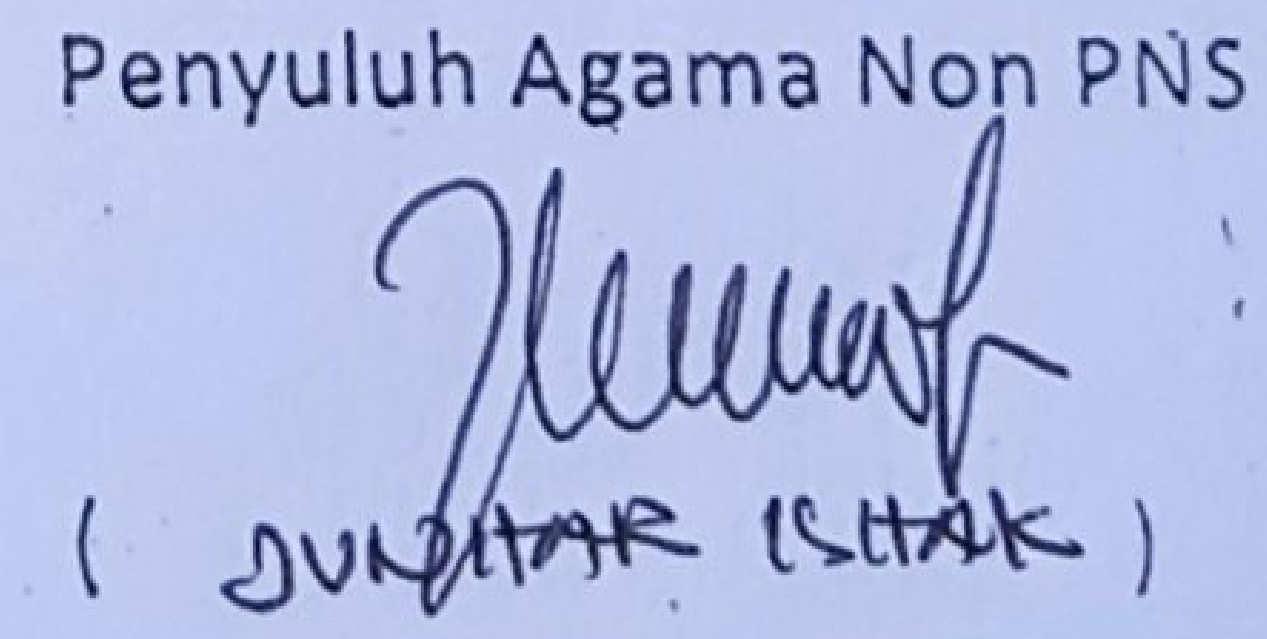 Penyuluh Agama Non PNS
( ISHAK )